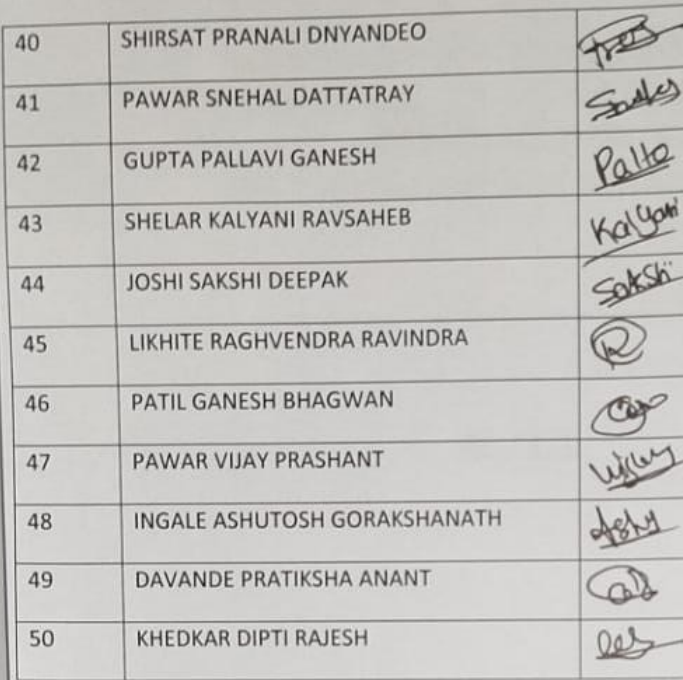 40 SHIRSAT PRANALI DNYANDEO
41 PAWAR SNEHAL DATTATRAY
42 GUPTA PALLAVI GANESH
43 SHELAR KALYANI RAVSAHEB Kalyani
44 JOSHI SAKSHI DEEPAK Sakshi
45 LIKHITE RAGHVENDRA RAVINDRA
46 PATIL GANESH BHAGWAN
47 PAWAR VIJAY PRASHANT
48 INGALE ASHUTOSH GORAKSHANATH
49 DAVANDE PRATIKSHA ANANT
50 KHEDKAR DIPTI RAJESH